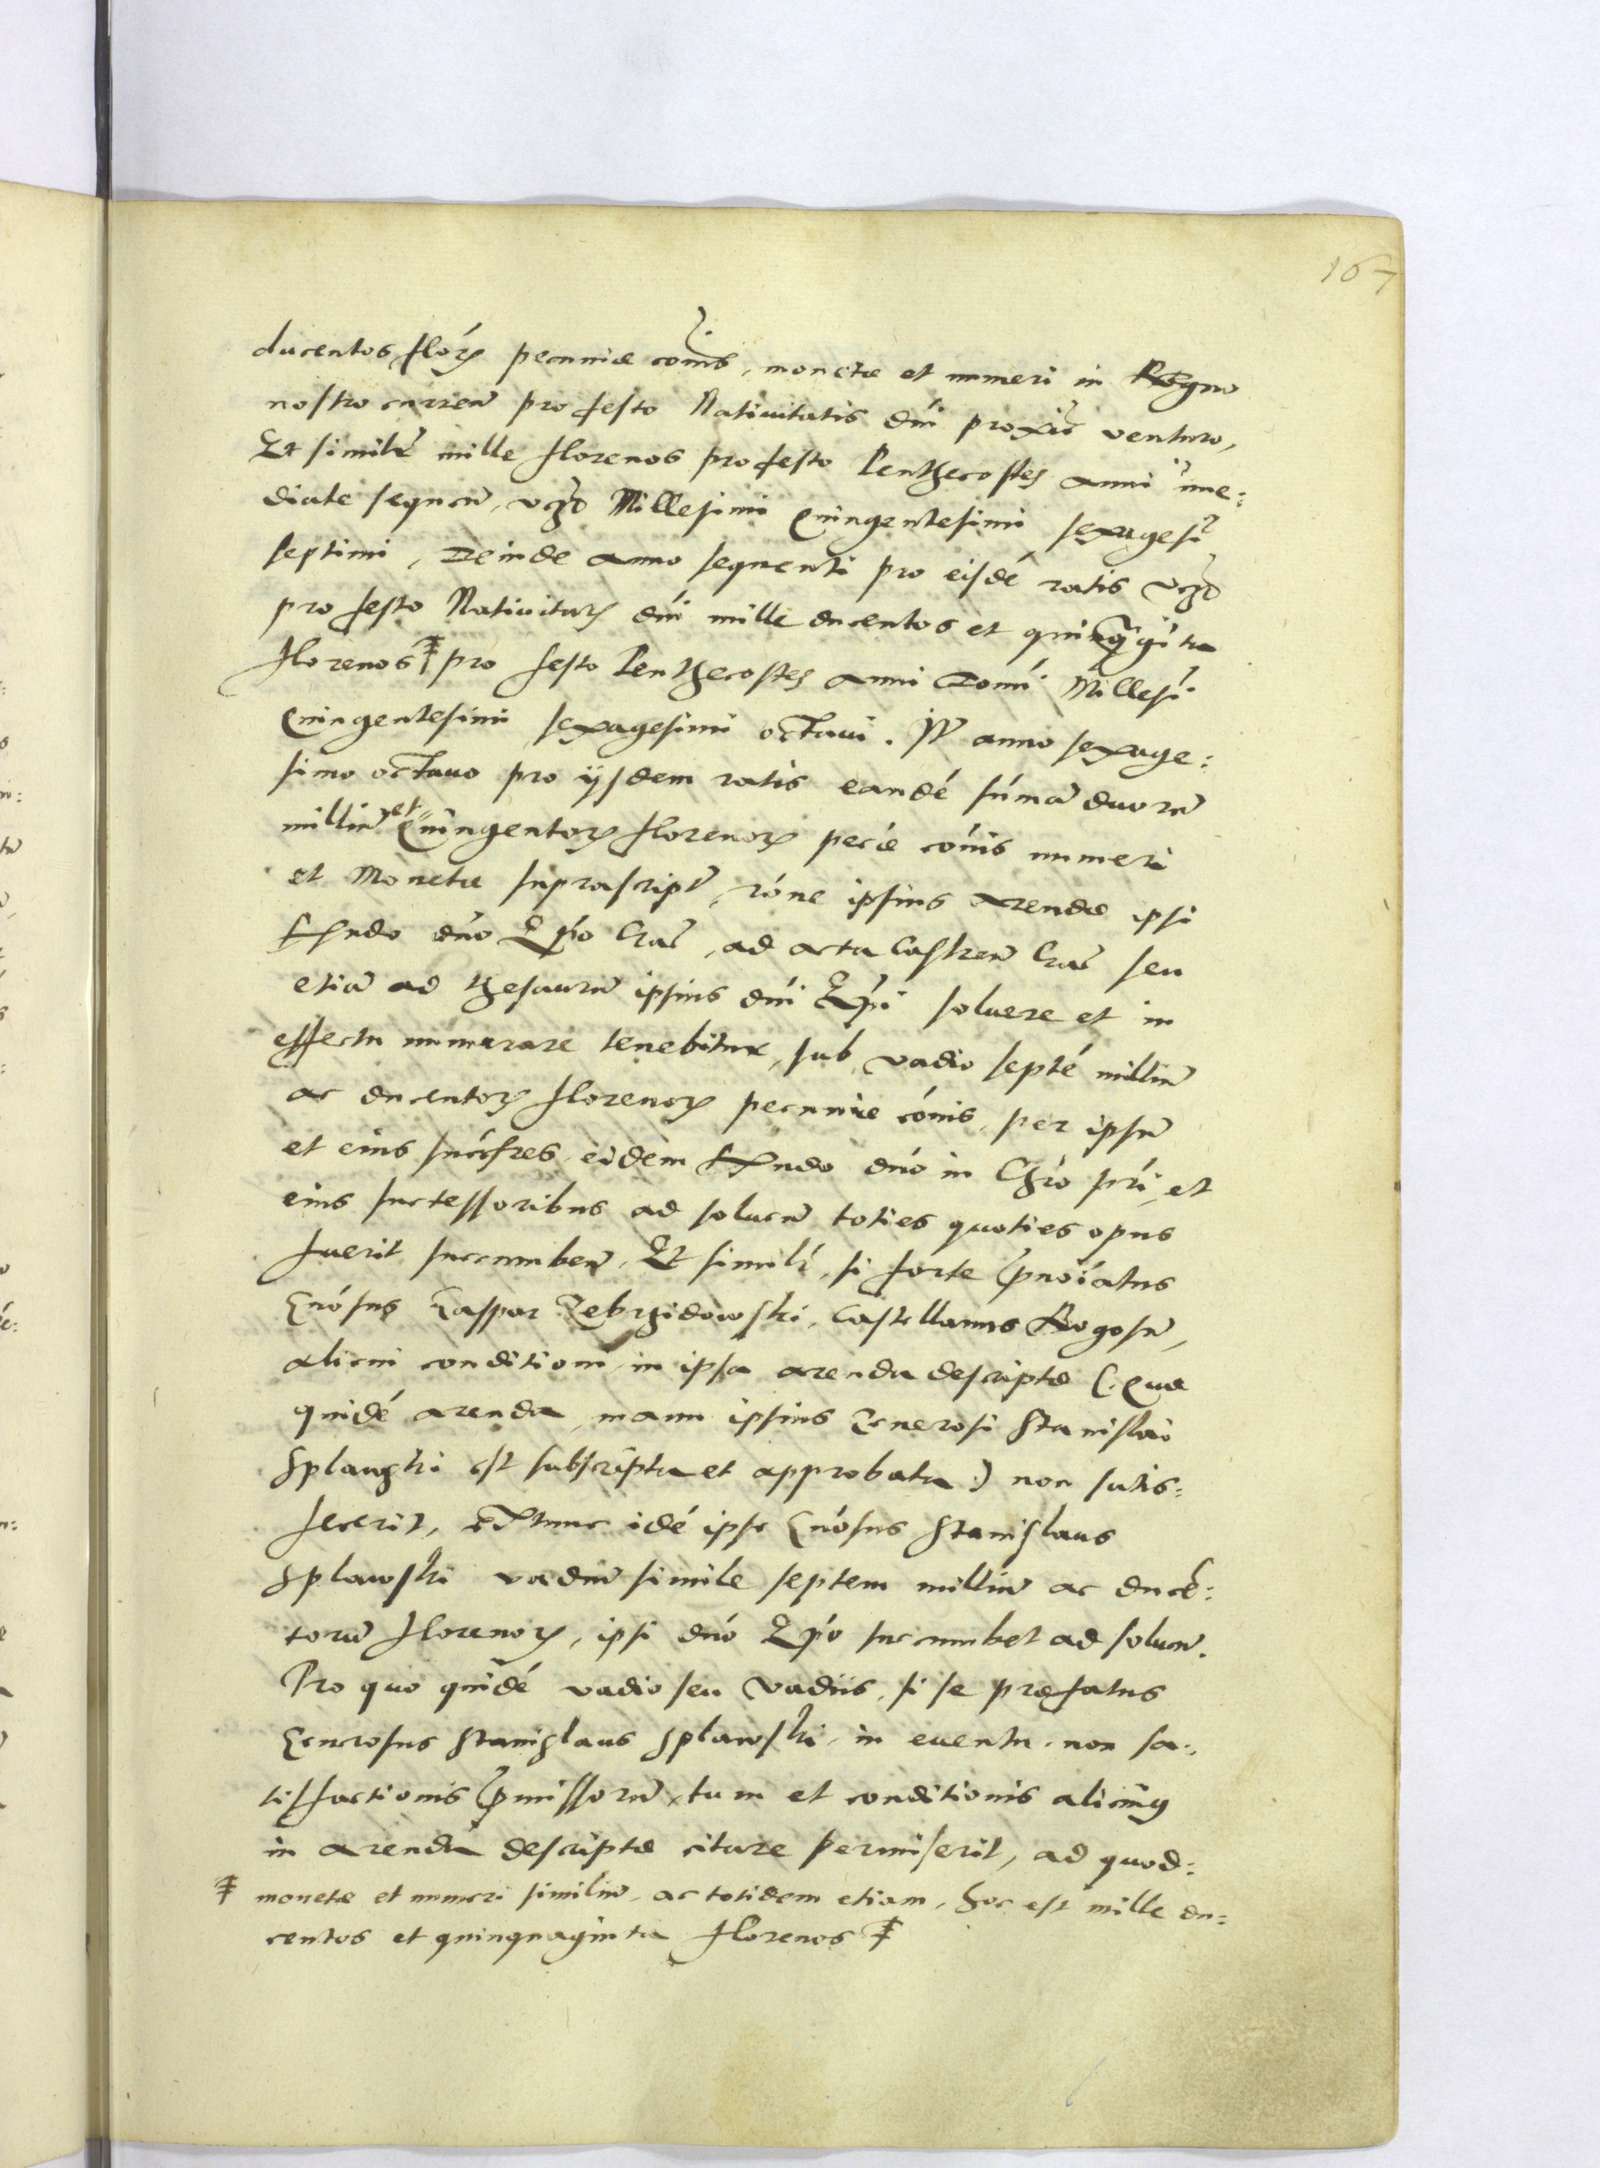 167
ducentos flor. pecuniæ cōis, monetæ et numeri in Regno
nostro curren̄ pro festo Natiuitatis dn̄i proxīe venturo,
Et similr̄ mille florenos pro festo Penthecostes anni im̄e:
diate sequen̄, vcz̄ Millesimi Quingentesimi sexagesī
septimi, Deinde anno sequenti pro eisdē ratis vcz̄
pro festo Natiuitatis dn̄i mille ducentos et quinq̄gīta
florenos ǂ pro festo Penthecostes anni Domī Millesī
Quingentesimi sexagesimi octaui. It̄ anno sexage:
simo octauo pro ijsdem ratis eandē sūmā duorū
milliū et Quingentor. florenor. pecīæ cōīnis numeri
et Monetæ suprascript̄, rōne ipsius arendæ ipsi
Rn̄do dn̄o Ep̄o Crac̄, ad acta Castren̄ Crac̄ seu
etiā ad thesaurū ipsius dn̄i Ep̄i soluere et in
effectu numerare tenebitur, sub vadio septē milliū
ac ducentor. florenor. pecuniæ cōīnis, per ipsū
et eius succ̄sres eidem Rn̄do dn̄o in Chr̄o pr̄i, et
eius successoribus ad soluen̄ toties quoties opus
fuerit succumben̄, Et similr̄, si forte p̄noīatus
Gn̄osus Caspar Zebrzidowski, Castellanus Rogosn̄,
alicui conditioni in ipsa arenda descriptæ (: Quæ
quidē arenda manu ipsius Generosi Stanislai
Splawski est subscripta et approbata :) non satis:
fecerit, extunc idē ipse Gn̄osus Stanislaus
Splawski vadiū simile septem milliū ac ducē:
torū florenor., ipsi dn̄o Ep̄o succumbet ad soluen̄.
Pro quo quidē vadio seu vadiis, si se præfatus
Generosus Stanislaus Splawski, in euentu non sa:
tisfactionis p̄missorū, tum et conditionis alicuius
in arenda descriptæ citare permiserit, ad quod:
ǂ monetæ et numeri similiū, ac totidem etiam, hoc est mille du:
centos et quinquaginta florenos ǂ